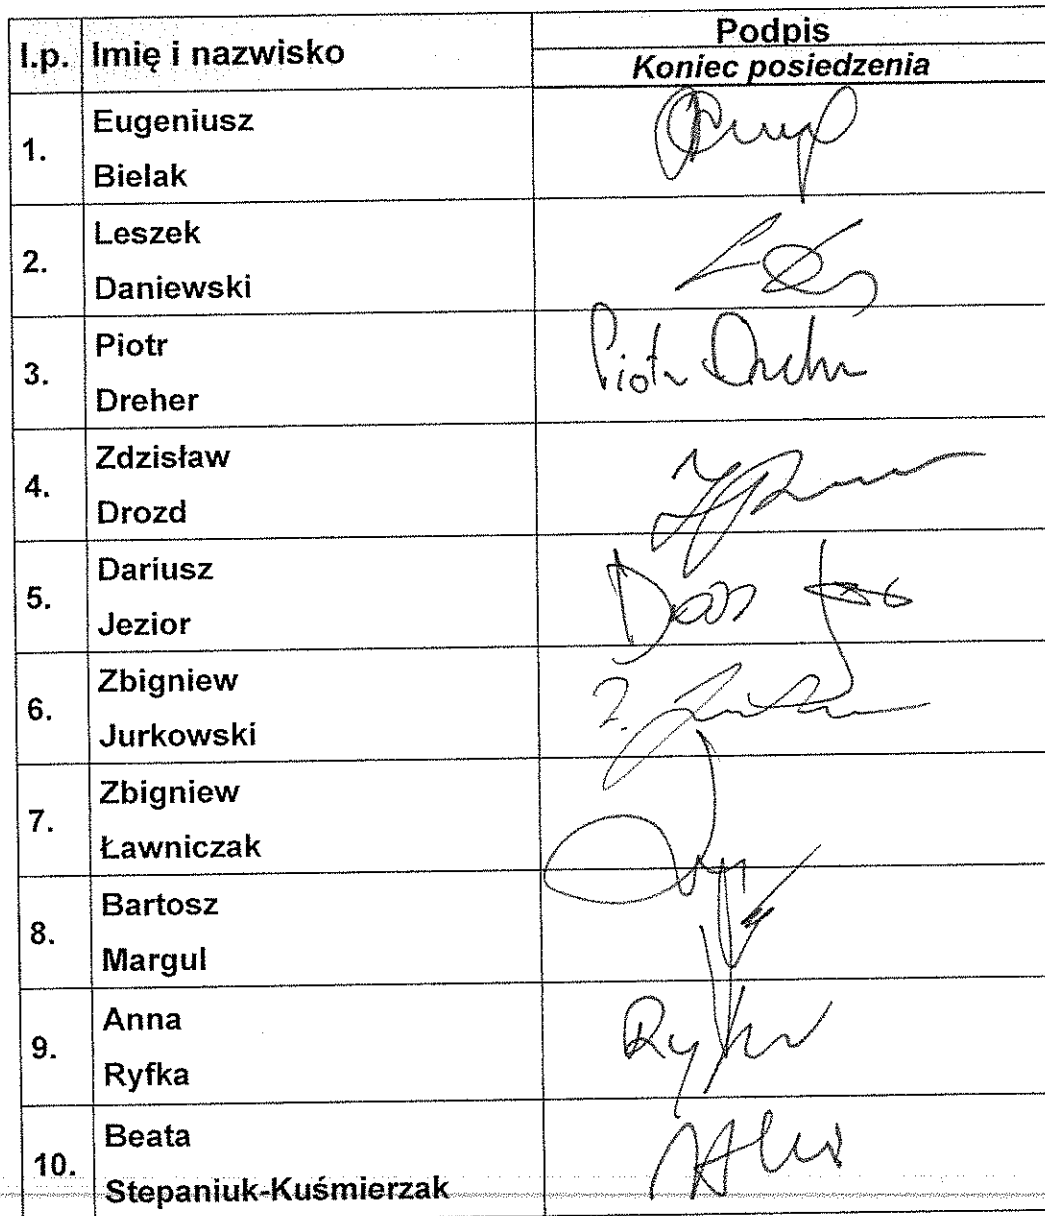 l.p. Imię i nazwisko Podpis
Koniec posiedzenia
1. Eugeniusz
Bielak
2. Leszek
Daniewski
3. Piotr
Dreher
Piotr Dreher
4. Zdzisław
Drozd
5. Dariusz
Jezior
6. Zbigniew
Jurkowski
7. Zbigniew
Ławniczak
8. Bartosz
Margul
9. Anna
Ryfka
10. Beata
Stepaniuk-Kuśmierzak